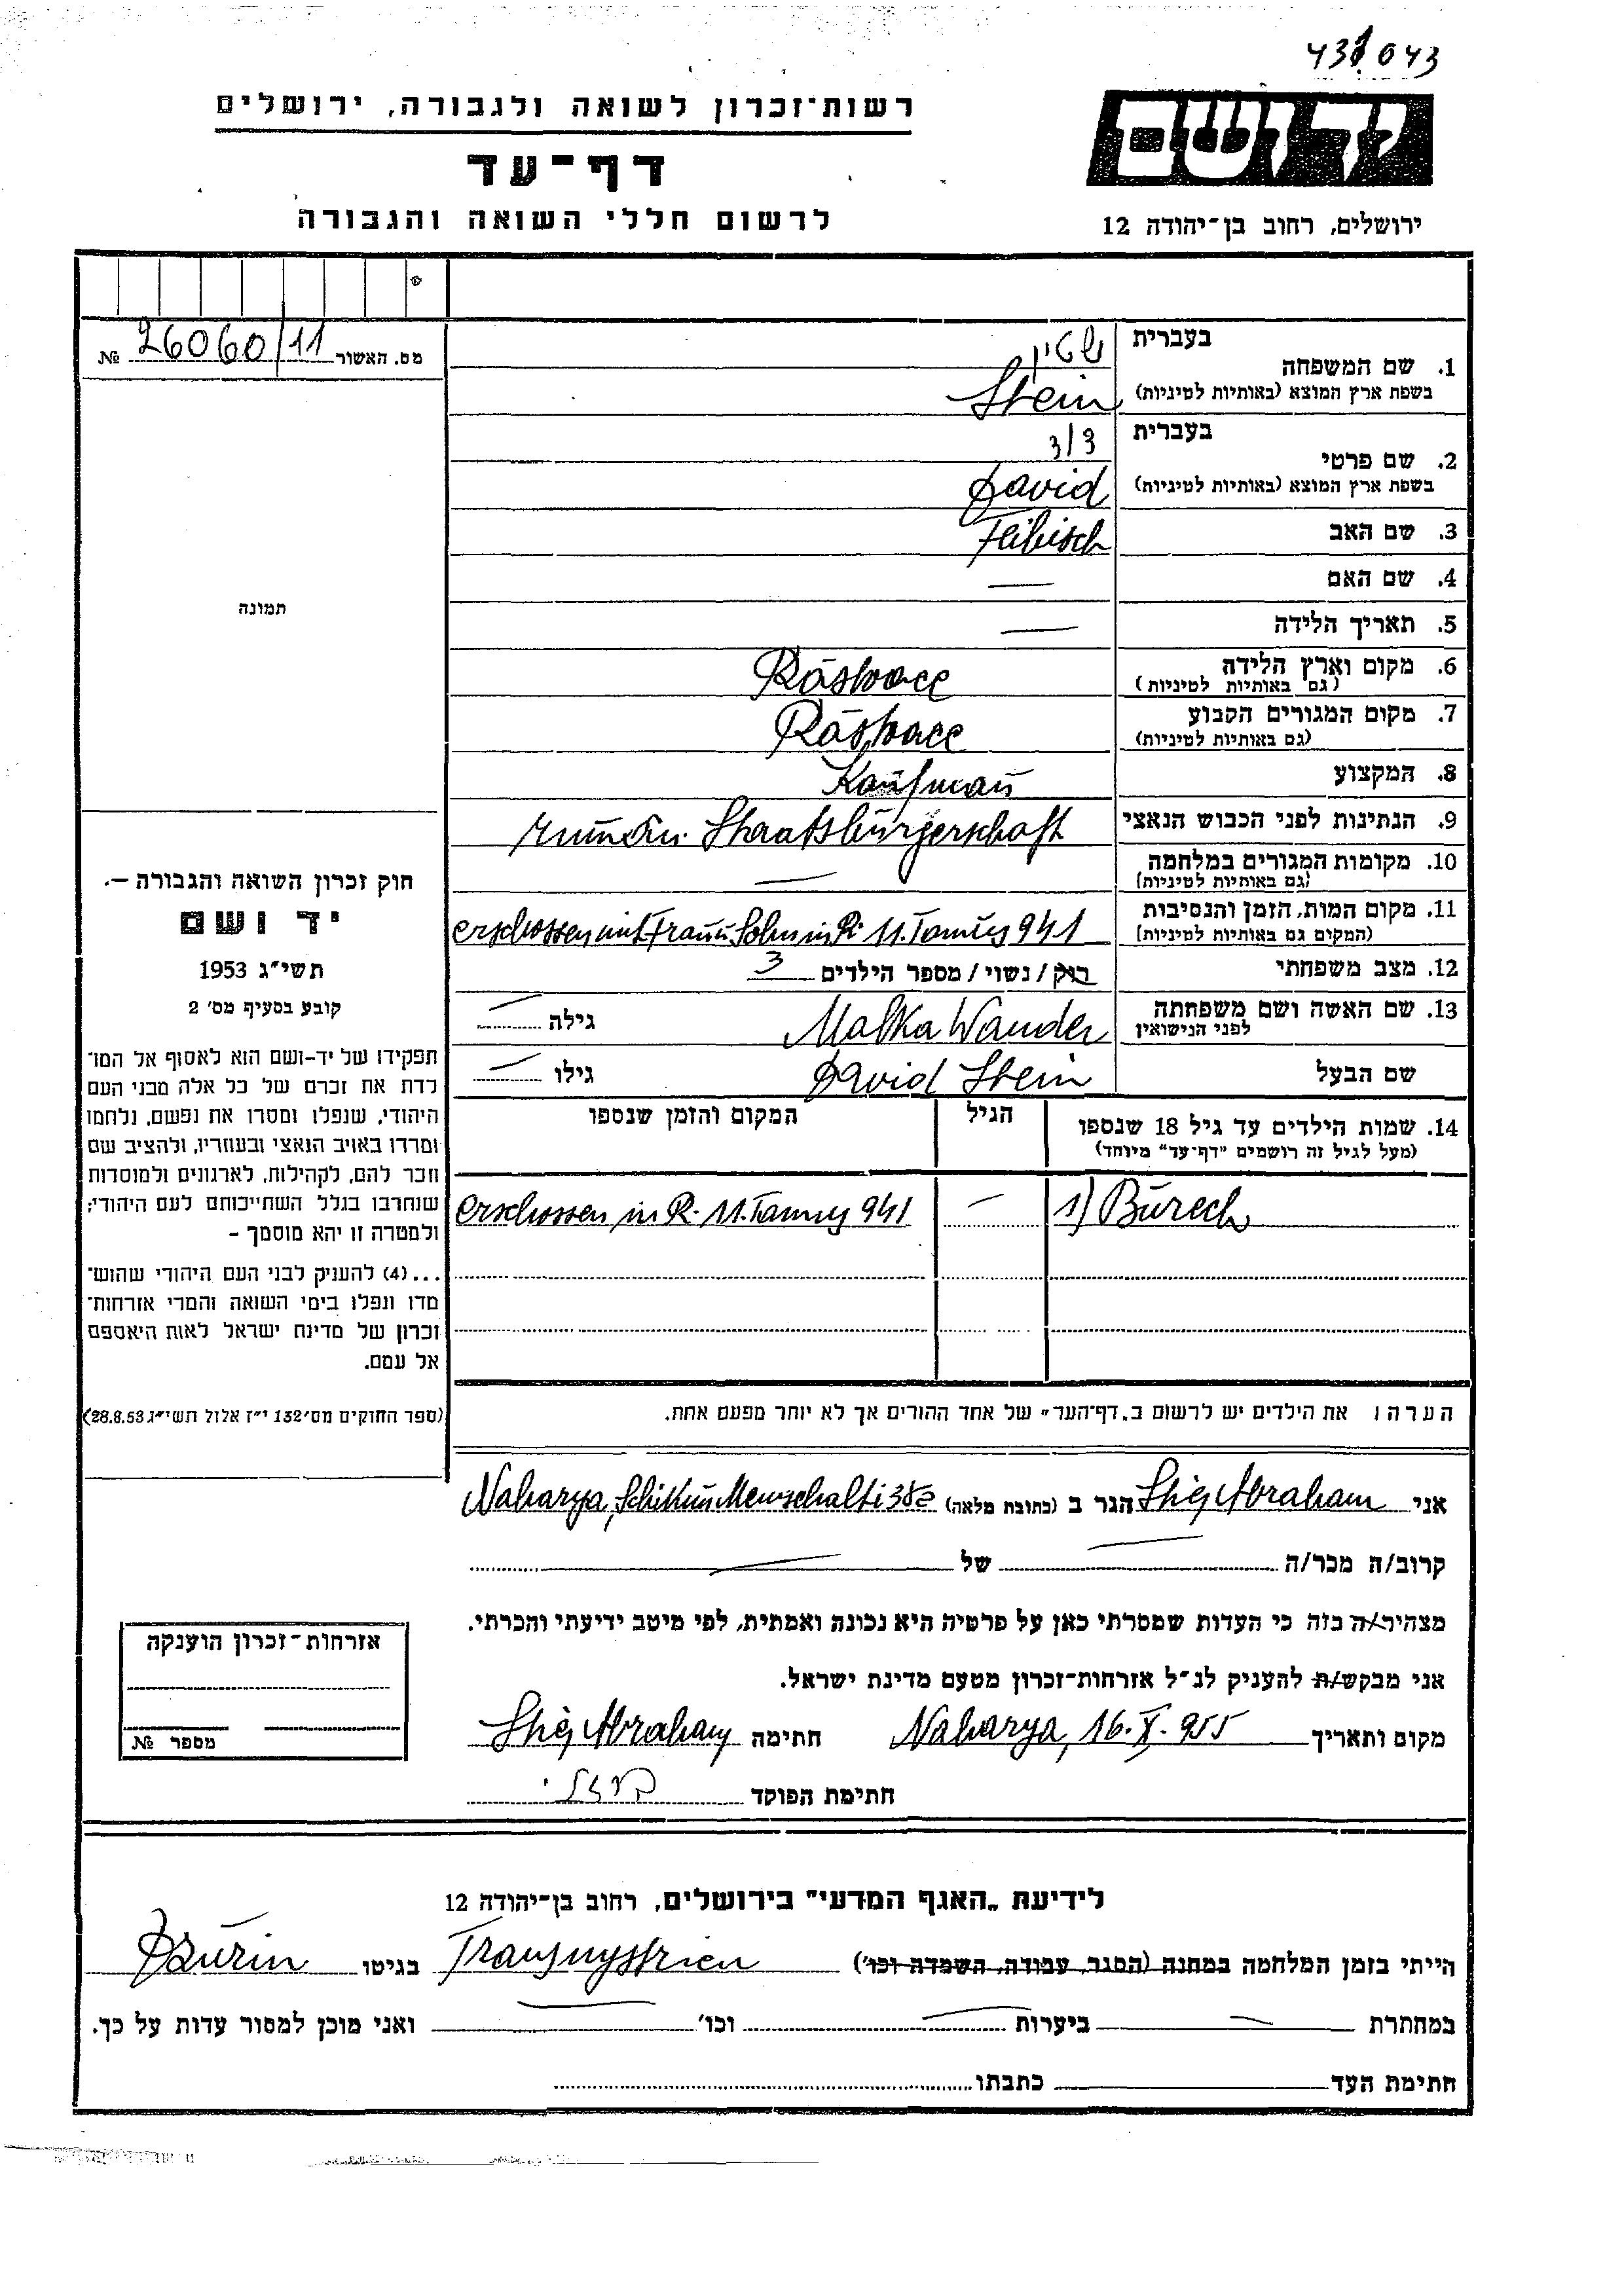 431043
יד ושם
ירושלים, רחוב בן־יהודה 12
רשות־זכרון לשואה ולגבורה, ירושלים
דף־עד
לרשום חללי השואה והגבורה
מס. האשור 26060/11 №
תמונה
חוק זכרון השואה והגבורה —.
יד ושם
תשי״ג 1953
קובע בסעיף מס׳ 2
תפקידו של יד־ושם הוא לאסוף אל המו־
לדת את זכרם של כל אלה מבני העם
היהודי, שנפלו ומסרו את נפשם, נלחמו
ומרדו באויב הנאצי ובעוזריו, ולהציב שם
וזכר להם, לקהילות, לארגונים ולמוסדות
שנחרבו בגלל השתייכותם לעם היהודי;
ולמטרה זו יהא מוסמך –
...(4) להעניק לבני העם היהודי שהוש־
מדו ונפלו בימי השואה והמרי אזרחות־
זכרון של מדינת ישראל לאות היאספם
אל עמם.
(ספר החוקים מס׳ 132 י״ז אלול תשי״ג 28.8.53)
בעברית שטיין
1. שם המשפחה
בשפת ארץ המוצא (באותיות לטיניות) Stein
בעברית דוד
2. שם פרטי
בשפת ארץ המוצא (באותיות לטיניות) David
3. שם האב Feibisch
4. שם האם —
5. תאריך הלידה —
6. מקום וארץ הלידה
(גם באותיות לטיניות)
7. מקום המגורים הקבוע
(גם באותיות לטיניות)
8. המקצוע Kaufman
9. הנתינות לפני הכבוש הנאצי Staatsbürgerschaft
10. מקומות המגורים במלחמה —
(גם באותיות לטיניות)
11. מקום המות, הזמן והנסיבות erschossen mit Frau u Sohn in R. 11. Tamus 941
(המקום גם באותיות לטיניות)
12. מצב משפחתי רוק / נשוי / מספר הילדים 3
13. שם האשה ושם משפחתה Malka Wander גילה —
לפני הנישואין
שם הבעל David Stein גילו —
14. שמות הילדים עד גיל 18 שנספו הגיל המקום והזמן שנספו
(מעל לגיל זה רושמים "דף־עד" מיוחד)
1) Burech — erschossen in R. 11. Tamus 941
הערה: את הילדים יש לרשום ב„דף־העד״ של אחד ההורים אך לא יותר מפעם אחת.
אני Abraham הגר ב (כתובת מלאה) Naharya, Schikun
קרוב/ה מכר/ה — של —
מצהיר/ה בזה כי העדות שמסרתי כאן על פרטיה היא נכונה ואמתית, לפי מיטב ידיעתי והכרתי.
אני מבקש/ת להעניק לנ״ל אזרחות־זכרון מטעם מדינת ישראל.
מקום ותאריך Naharya, 16. X. 955 חתימה Abraham
חתימת הפוקד
אזרחות־זכרון הוענקה
מספר №
לידיעת „האגף המדעי״ בירושלים, רחוב בן־יהודה 12
הייתי בזמן המלחמה במחנה (הסגר, עבודה, השמדה וכו׳) Transnystrien בגיטו Dzurin
במחתרת — ביערות — וכו׳ — ואני מוכן למסור עדות על כך.
חתימת העד כתבתו